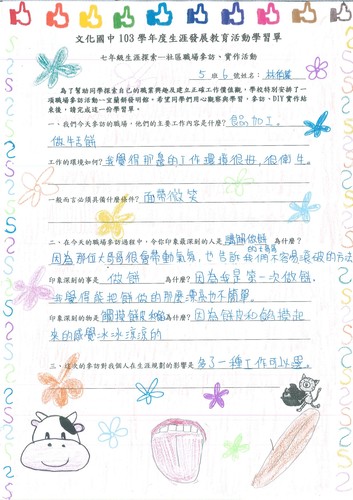 文化國中 103 學年度生涯發展教育活動學習單
七年級生涯探索—社區職場參訪、實作活動
5 班 6 號姓名:
為了幫助同學探索自己的職業興趣及建立正確工作價值觀,學校特別安排了一
項職場參訪活動—宜蘭餅發明館,希望同學們用心觀察與學習,參訪、DIY 實作結
束後,請完成這一份學習單。
一、我們今天參訪的職場,他們的主要工作內容是什麼? 食品加工。
做牛舌餅
工作的環境如何? 我覺得那裡的工作環境很好,很衛生。
一般而言必須具備什麼條件? 面帶微笑
二、在今天的職場參訪過程中,令你印象最深刻的人是 講解做餅的媽媽 為什麼?
因為那位媽媽很會帶動氣氛,也告訴我們不容易壞破的方法
印象深刻的事是 做餅 為什麼? 因為我是第一次做餅。
我覺得能把餅做的那麼漂亮也不簡單。
印象深刻的物是 觸摸餅皮和餡 為什麼? 因為餅皮和餡摸起
來的感覺冰冰涼涼的
三、這次的參訪對我個人在生涯規劃的影響是 多了一種工作可以選。